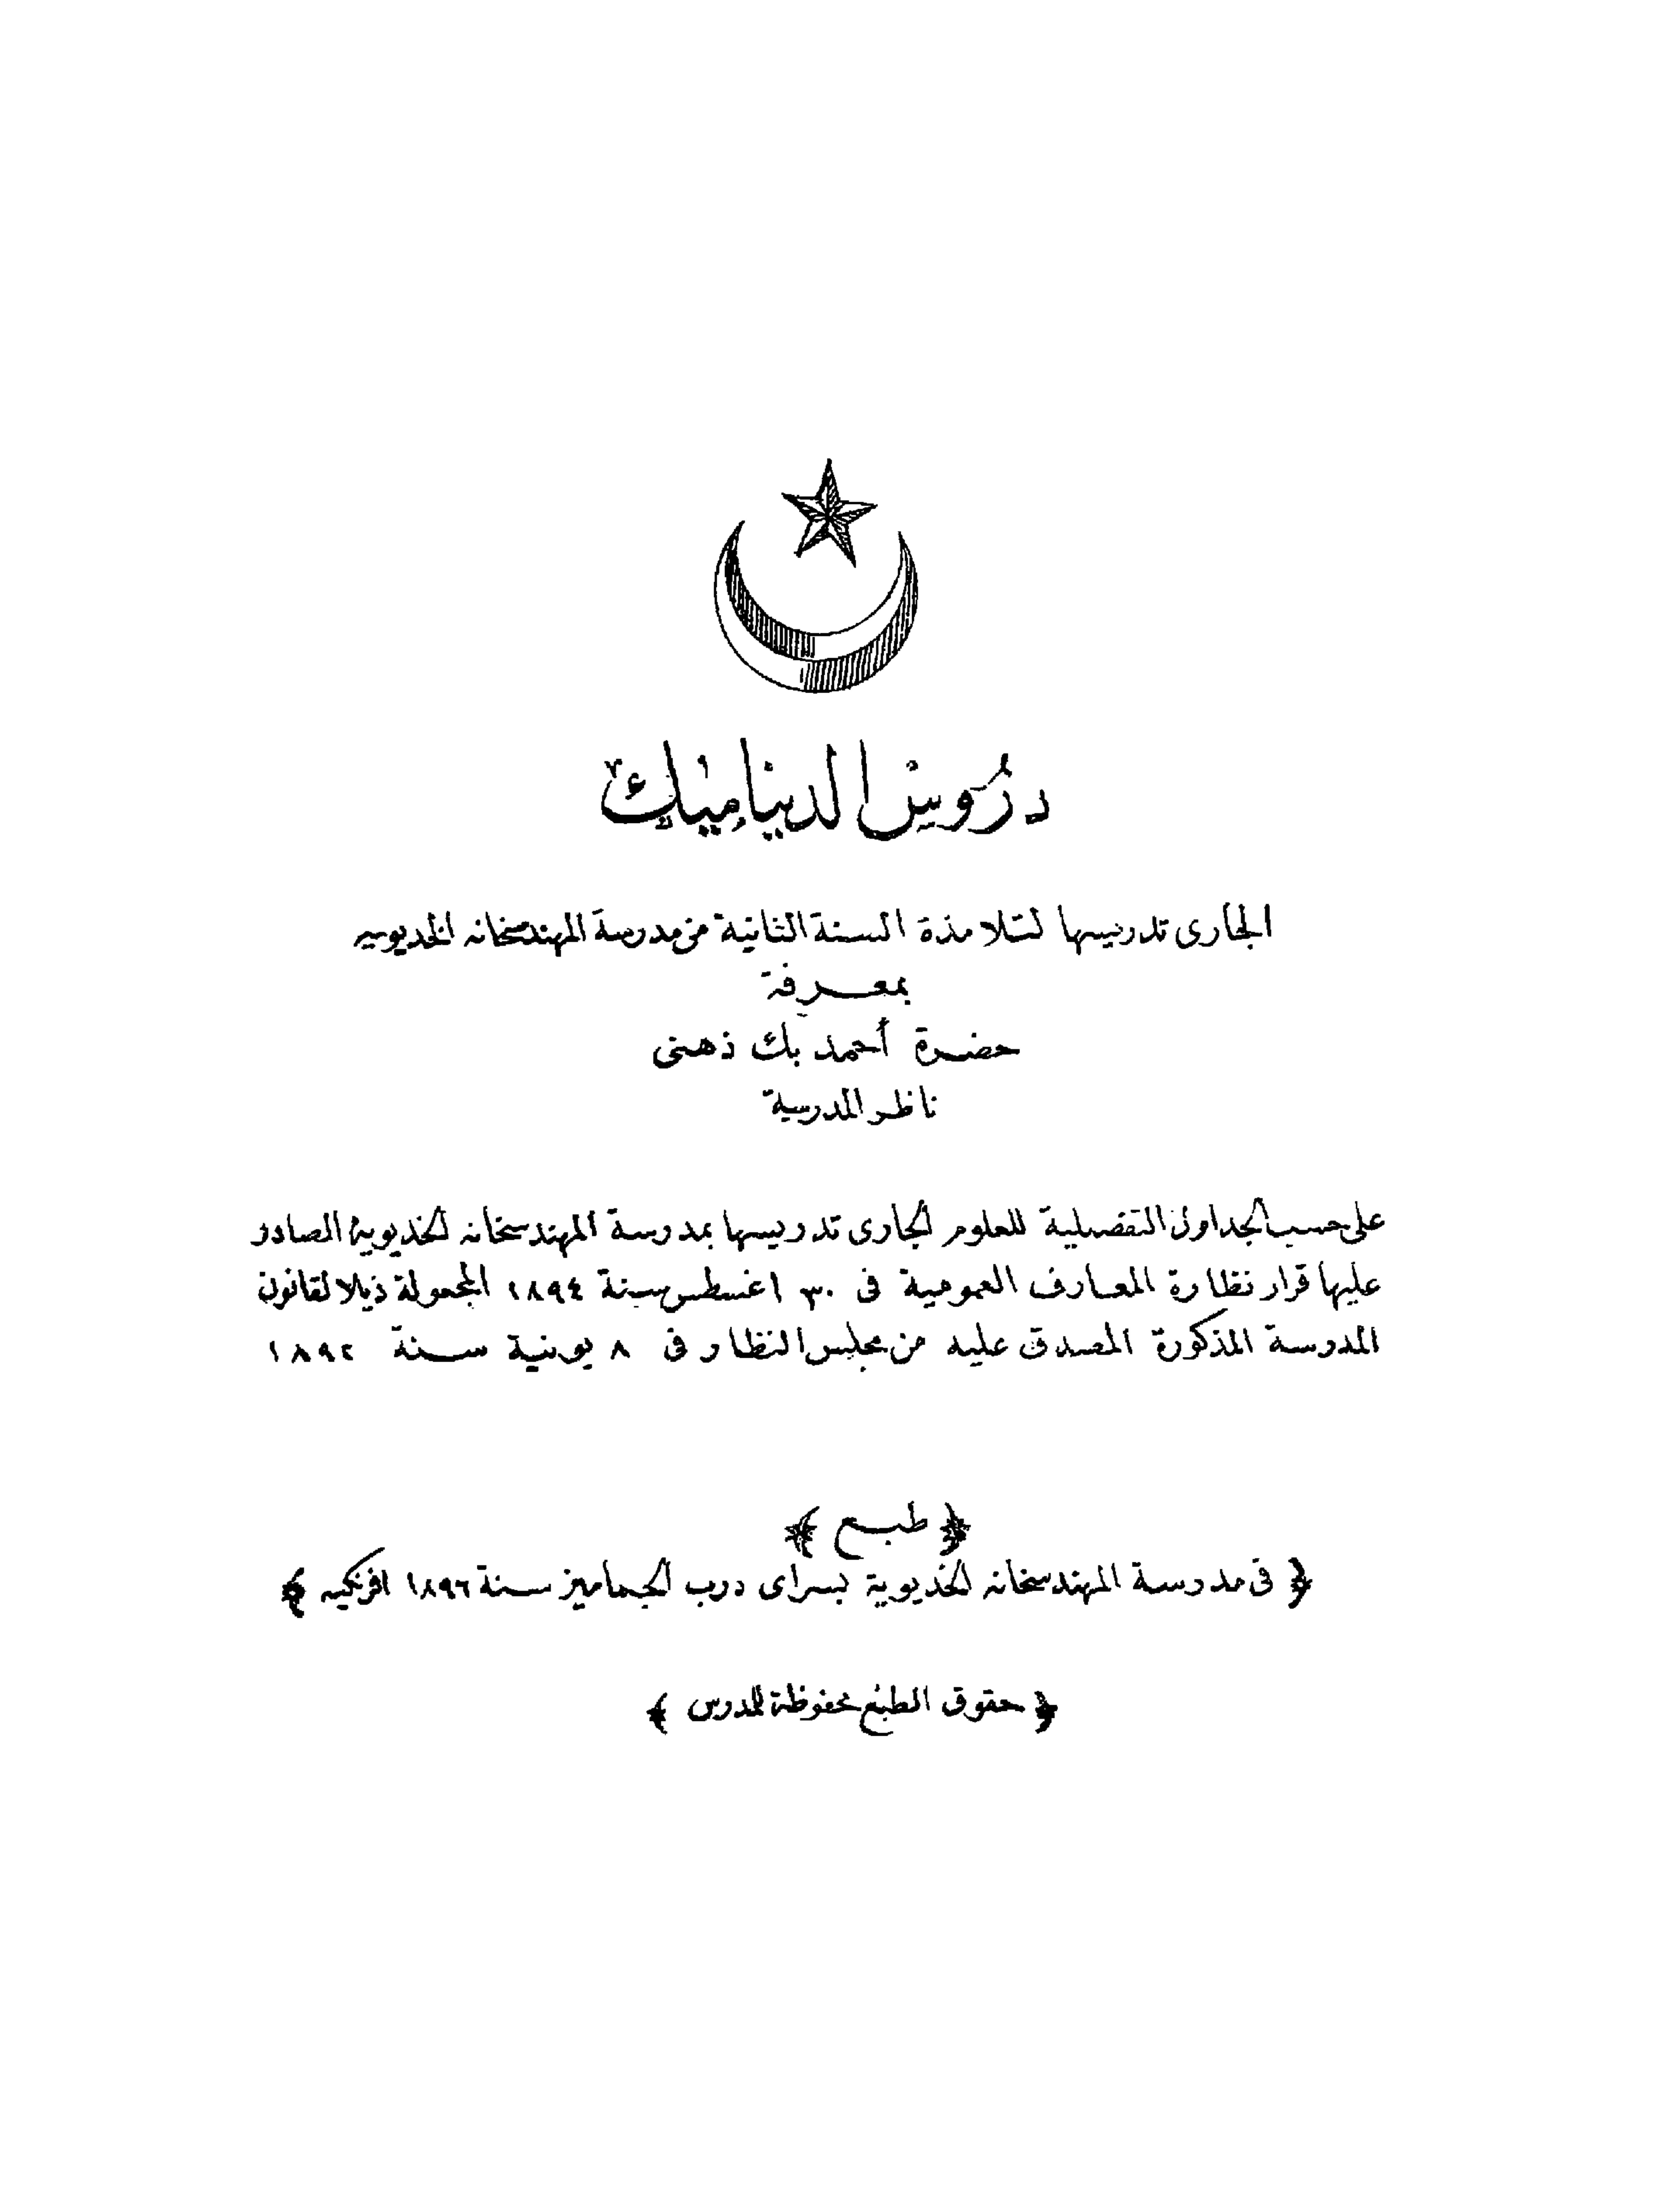 دروس الديناميك
الجارى تدريسها لتلامذة السنة الثانية من مدرسة المهندسخانه الخديويه
بمعرفة
حضرة أحمد بك ذهنى
ناظر المدرسة
على حسب الجداول التفصيلية للعلوم الجارى تدريسها بمدرسة المهندسخانه الخديوية الصادر
عليها قرار نظارة المعارف العمومية فى ٣٠ اغسطس سنة ١٨٩٤ المجعولة ذيلا لقانون
المدرسة المذكورة المصدق عليه من مجلس النظار فى ٨ يونية سنة ١٨٩٢
﴿ طبع ﴾
﴿ فى مدرسة المهندسخانه الخديوية بسراى درب الجماميز سنة ١٨٩٦ افرنكيه ﴾
﴿ حقوق الطبع محفوظة للمدرس ﴾